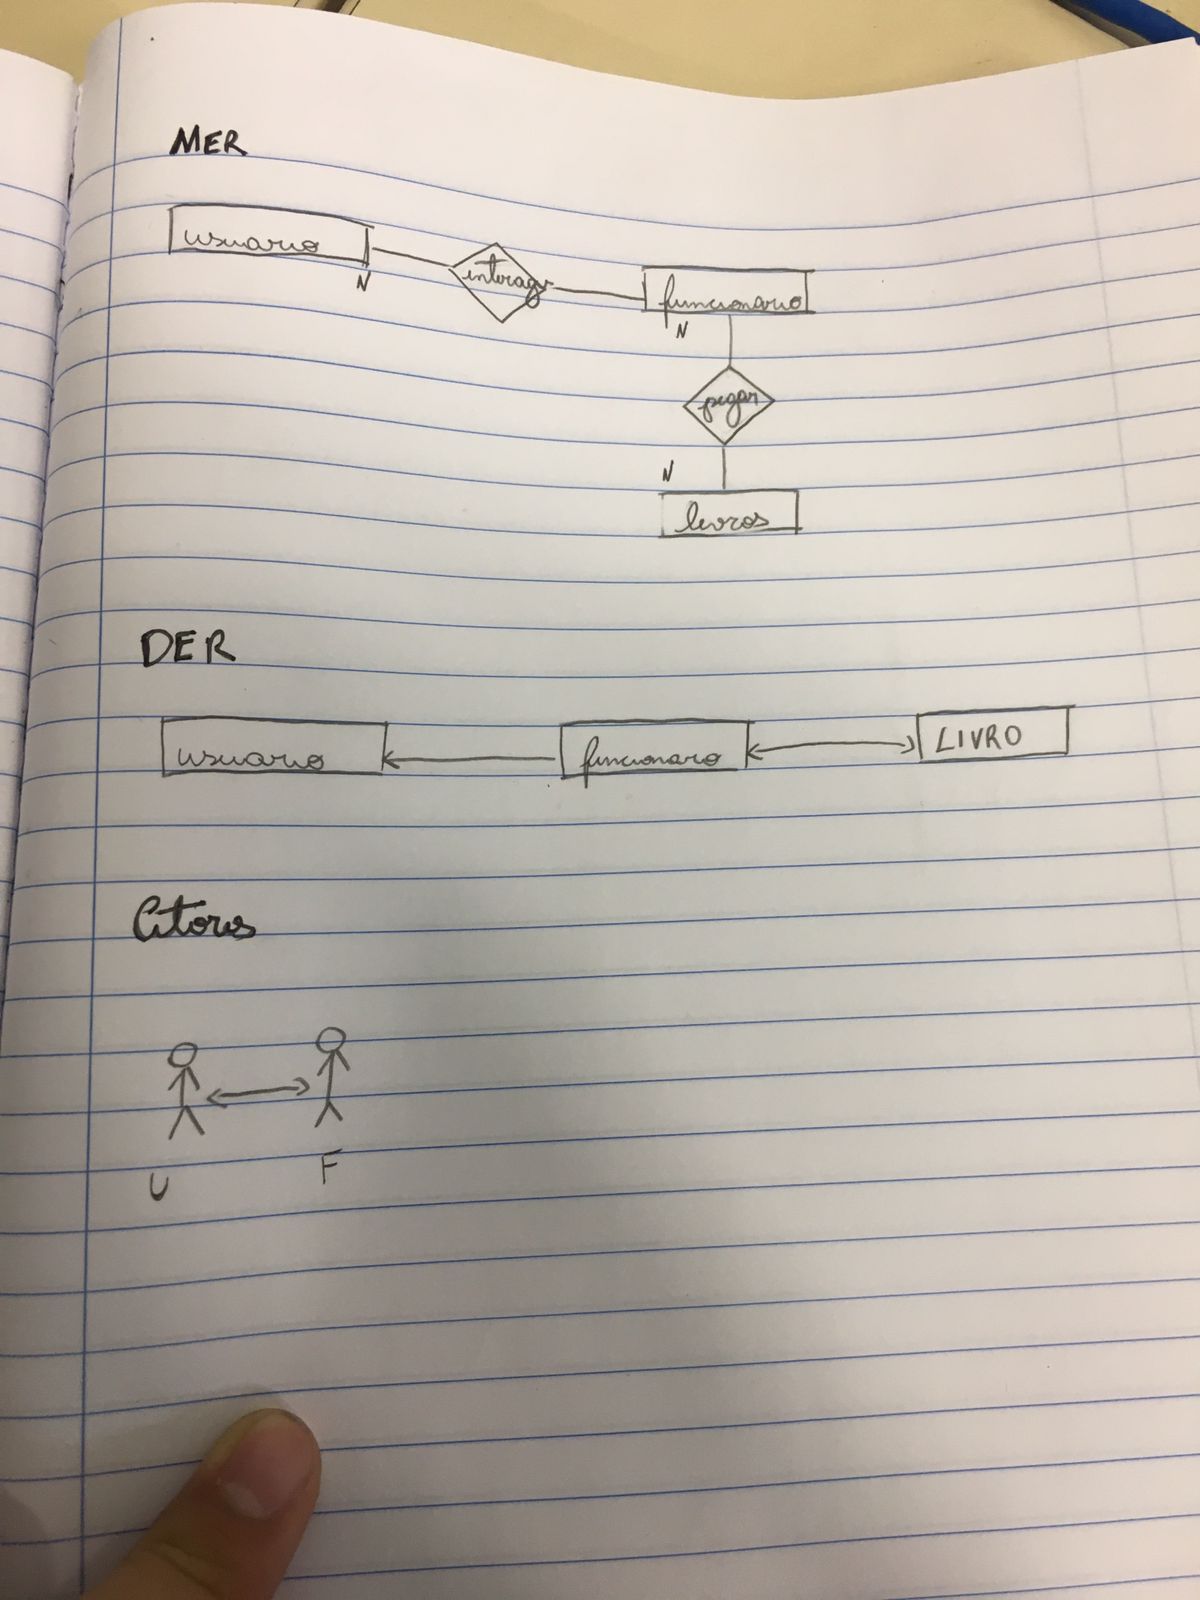 MER
usuario
interage
funcionario
N
N
pegar
N
livros
DER
usuario
funcionaro
LIVRO
Atores
U
F